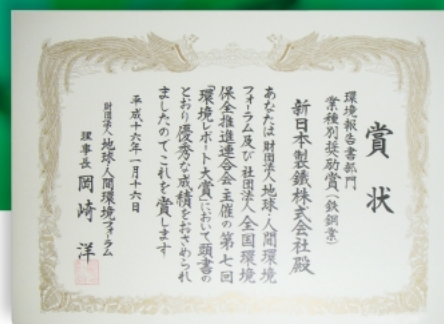 賞状
環境報告書部門
業種別奨励賞(鉄鋼業)
新日本製鐵株式会社殿
あなたは財団法人地球・人間環境
フォーラム及び社団法人全国環境
保全推進連合会主催の第七回
「環境レポート大賞」において頭書の
とおり優秀な成績をおさめられ
ましたのでこれを賞します
平成十六年一月十六日
財団法人地球・人間環境フォーラム
理事長 岡崎 洋